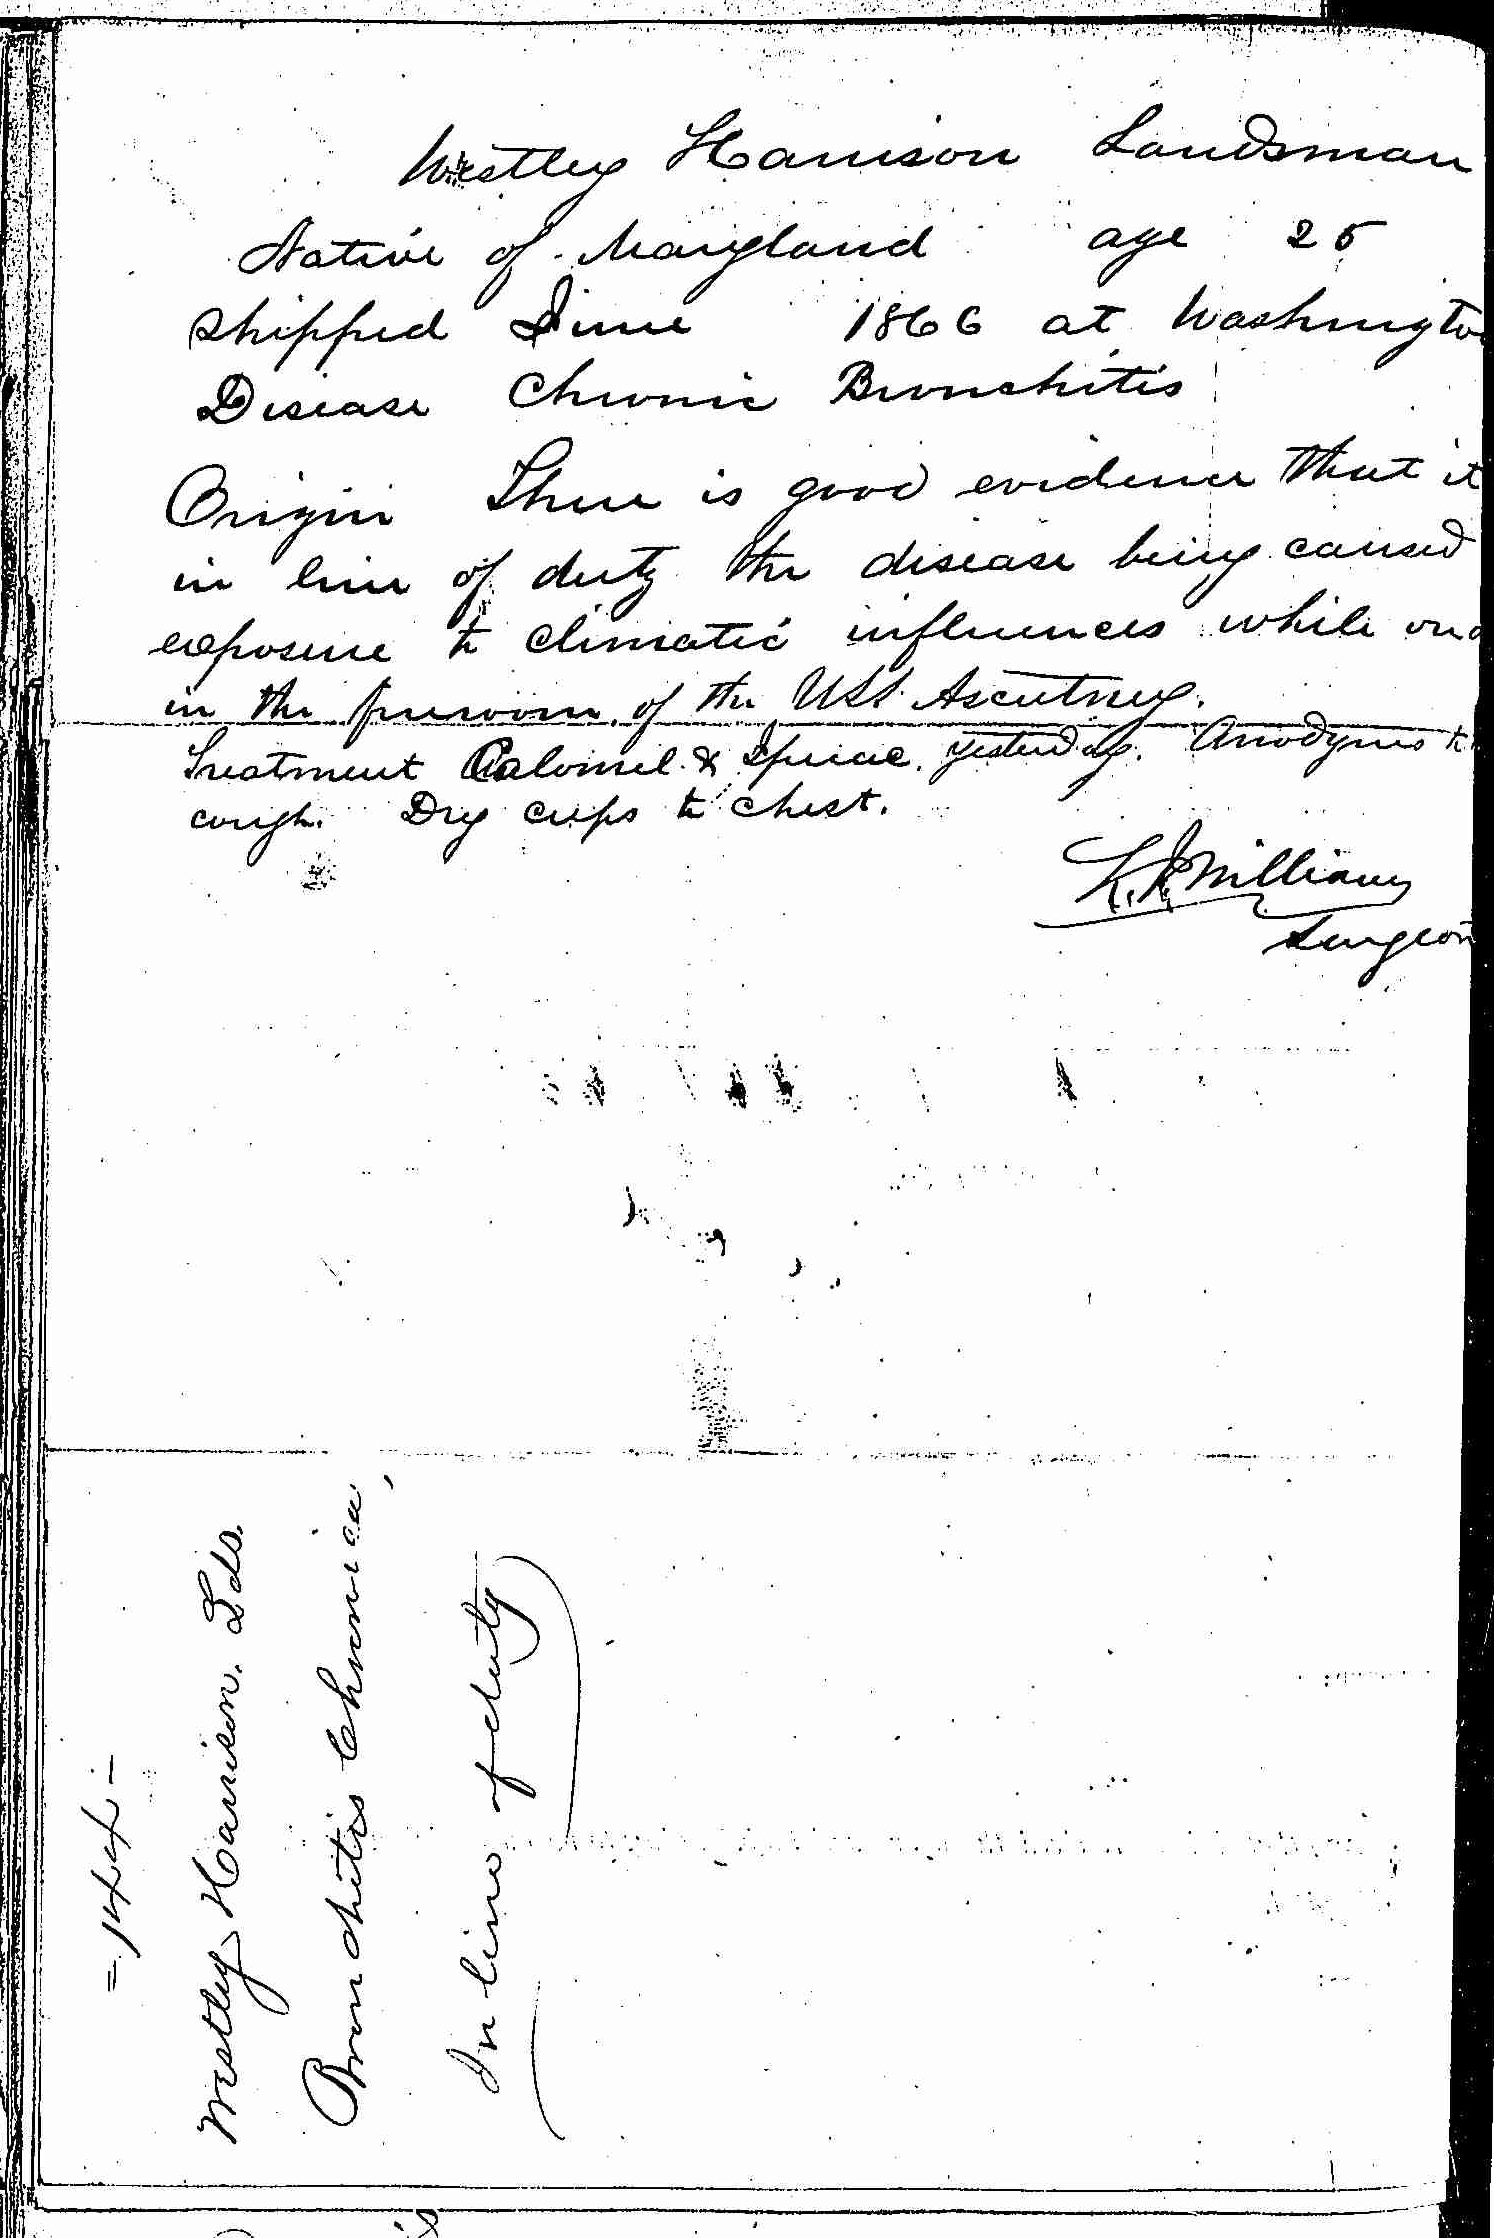 Westley Harrison Landsman
Native of Maryland age 25
Shipped June 1866 at Washington
Disease Chronic Bronchitis
Origin There is good evidence that it
in line of duty the disease being caused
exposure to climatic influences while on
in the fireroom of the USS Ascutney.
Treatment Calomel & Ipecac, yesterday. Anodynes to
cough. Dry cups to chest.
Williams
Surgeon
= 144 -
Westley Harrison. Lds.
Bronchitis Chronica,
In line of duty